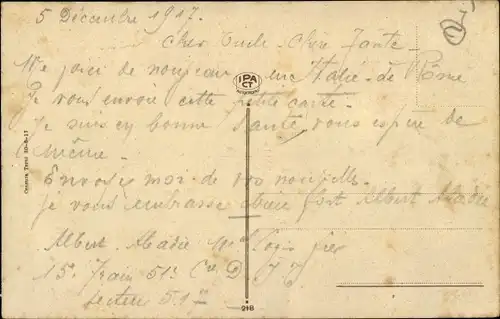 5 Décembre 1917.
Cher Oncle - Cher Tante -
Me voici de nouveau en Italie - de Rome
Je vous envoie cette petite carte -
Je suis en bonne santé, vous espère de
même -
Envoyez moi de vos nouvelles -
Je vous embrasse bien fort Albert Abadie
Albert - Abadie Mal Logis
15e Train 51e Cie D
Secteur 51
IPA
CT
AUTOCHROM
Censura Terni 30-8-17
218